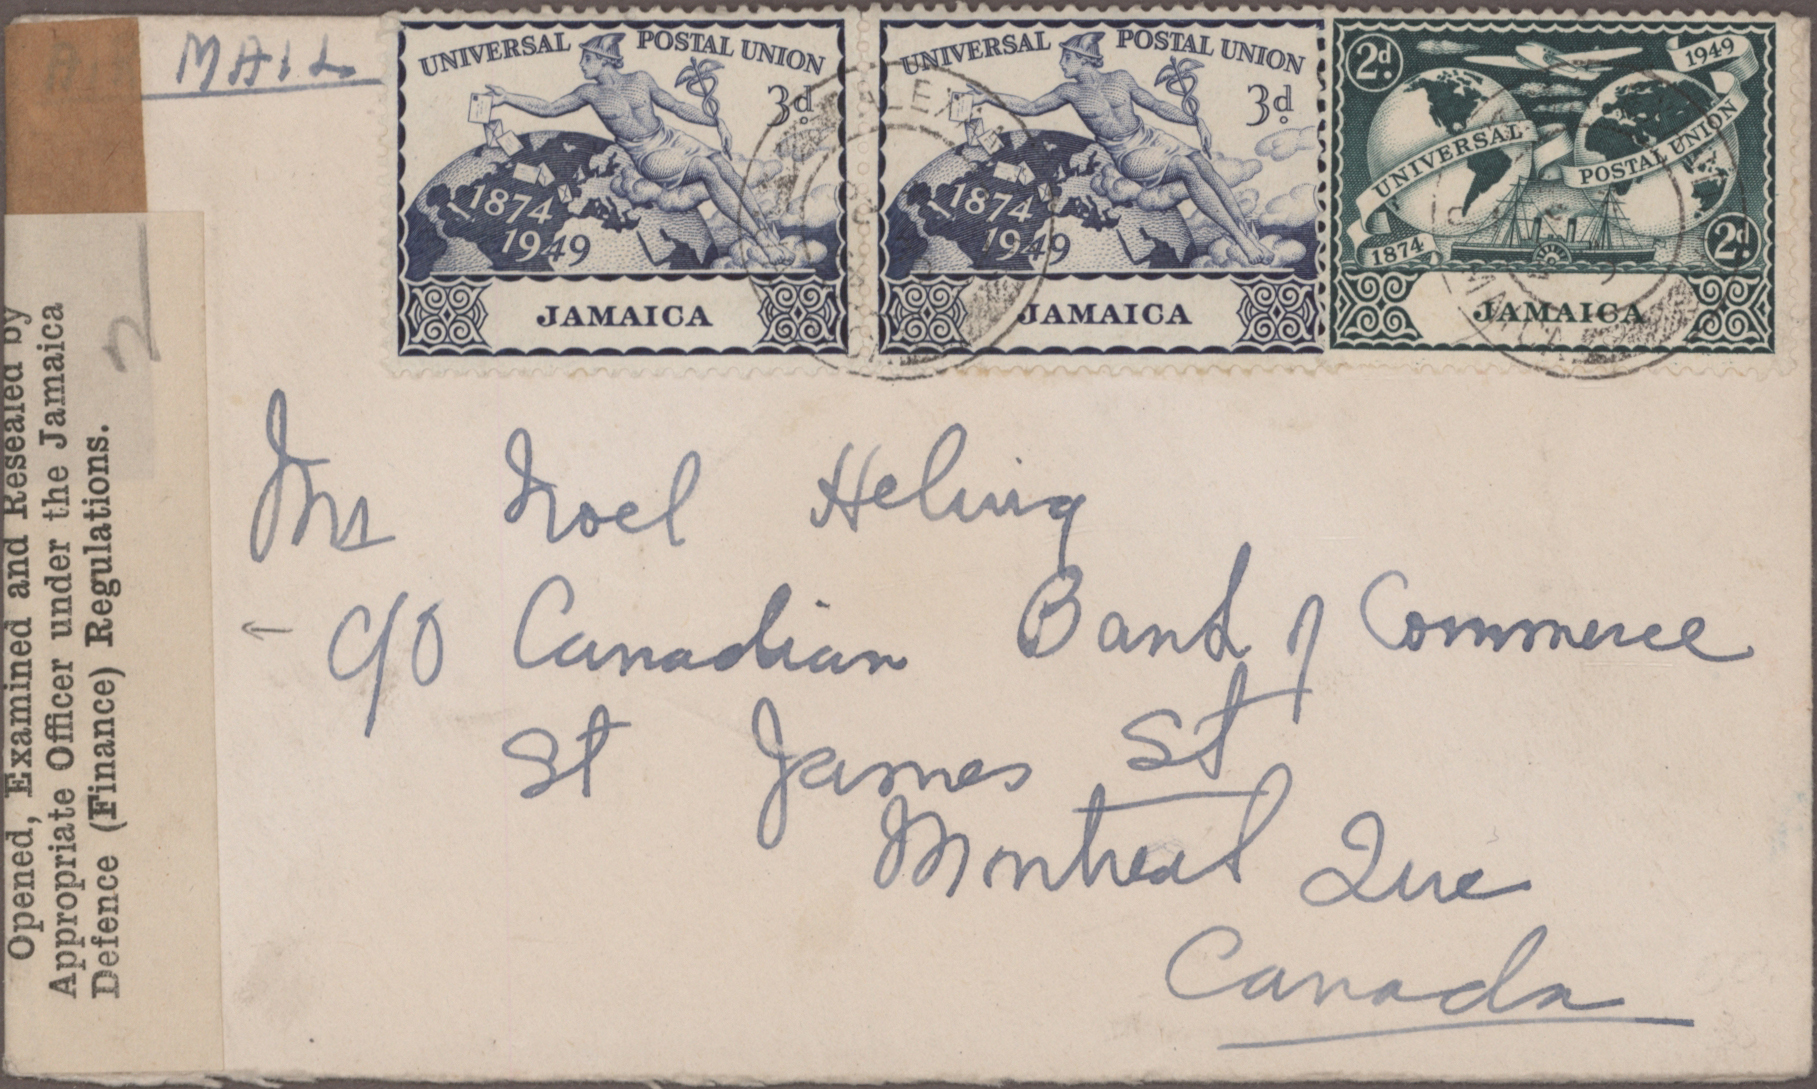 AIR MAIL
UNIVERSAL POSTAL UNION
3d
1874
1949
JAMAICA
UNIVERSAL POSTAL UNION
3d
1874
1949
JAMAICA
2d
1949
UNIVERSAL POSTAL UNION
1874
2d
JAMAICA
Opened, Examined and Resealed by
Appropriate Officer under the Jamaica
Defence (Finance) Regulations.
2
Mr Noel Heling
c/o Canadian Bank of Commerce
St James St
Montreal Que
Canada